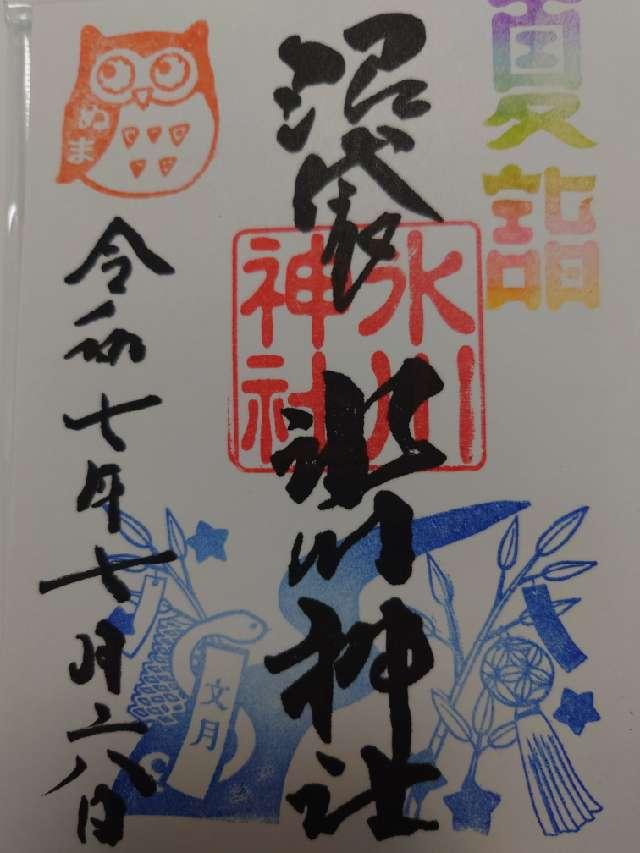 夏詣
沼袋 氷川神社
氷川神社
ぬま
令和七年七月二八日
文月